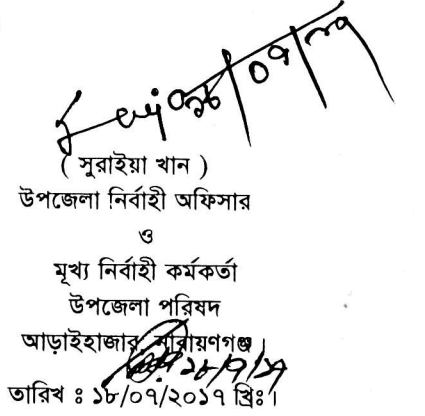 ( সুরাইয়া খান )
উপজেলা নির্বাহী অফিসার
ও
মূখ্য নির্বাহী কর্মকর্তা
উপজেলা পরিষদ
আড়াইহাজার, নারায়ণগঞ্জ।
তারিখ ঃ ১৮/০৭/২০১৭ খ্রিঃ।